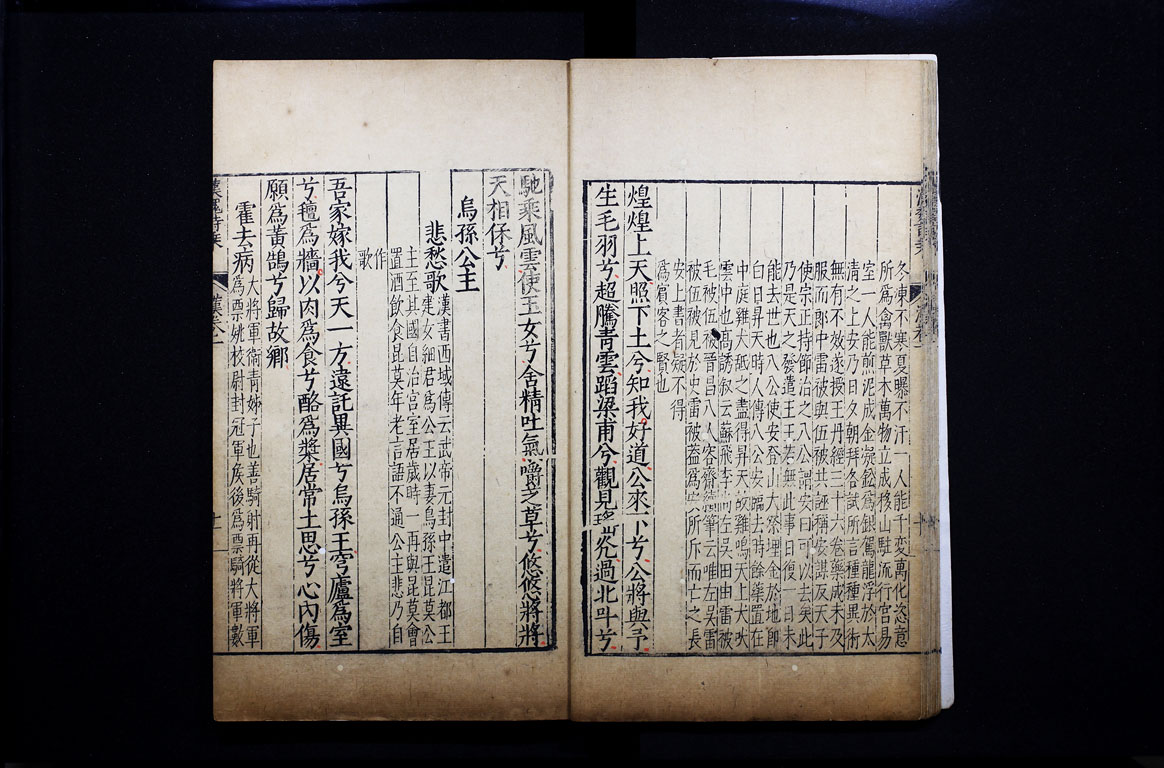 冬凍不寒夏曝不汗一人能千變萬化恣意
所爲禽獸草木萬物立成移山駐流行宮易
室一人能煎泥成金凝鈆爲銀駕龍浮於太
清之上安乃日夕朝拜各試所言種種異術
無有不效遂授王丹經三十六卷藥成未及
服而郎中雷被與伍被共誣稱安謀反天子
使宗正持節治之八公謂安曰可以去矣此
乃是天之發遣王王若無此事日復一日未
能去世也八公使安登山大祭埋金於地即
白日昇天時人傳八公安臨去時餘藥置在
中庭雞犬舐之盡得昇天故雞鳴天上犬吠
雲中也高誘叙云蘇飛李尚左吳田由雷被
毛被伍被晉昌八人容齋續筆云唯左吳雷
被伍被見於史雷被葢爲安所斥而亡之長
安上書者疑不得
爲賓客之賢也
煌煌上天照下土兮知我好道公來下兮公將與予
生毛羽兮超騰青雲蹈梁甫兮觀見瑤光過北斗兮
馳乘風雲使玉女兮含精吐氣嚼芝草兮悠悠將將
天相保兮
烏孫公主
悲愁歌
漢書西域傳云武帝元封中遣江都王
建女細君爲公主以妻烏孫王昆莫公
主至其國自治宮室居歲時一再與昆莫會
置酒飲食昆莫年老言語不通公主悲乃自
作
歌
吾家嫁我兮天一方遠託異國兮烏孫王穹廬爲室
兮氊爲牆以肉爲食兮酪爲漿居常土思兮心內傷
願爲黃鵠兮歸故鄉
霍去病
大將軍衛青姊子也善騎射再從大將軍
爲票姚校尉封冠軍矦後爲票騎將軍數
漢魏詩乘
漢卷一
十一